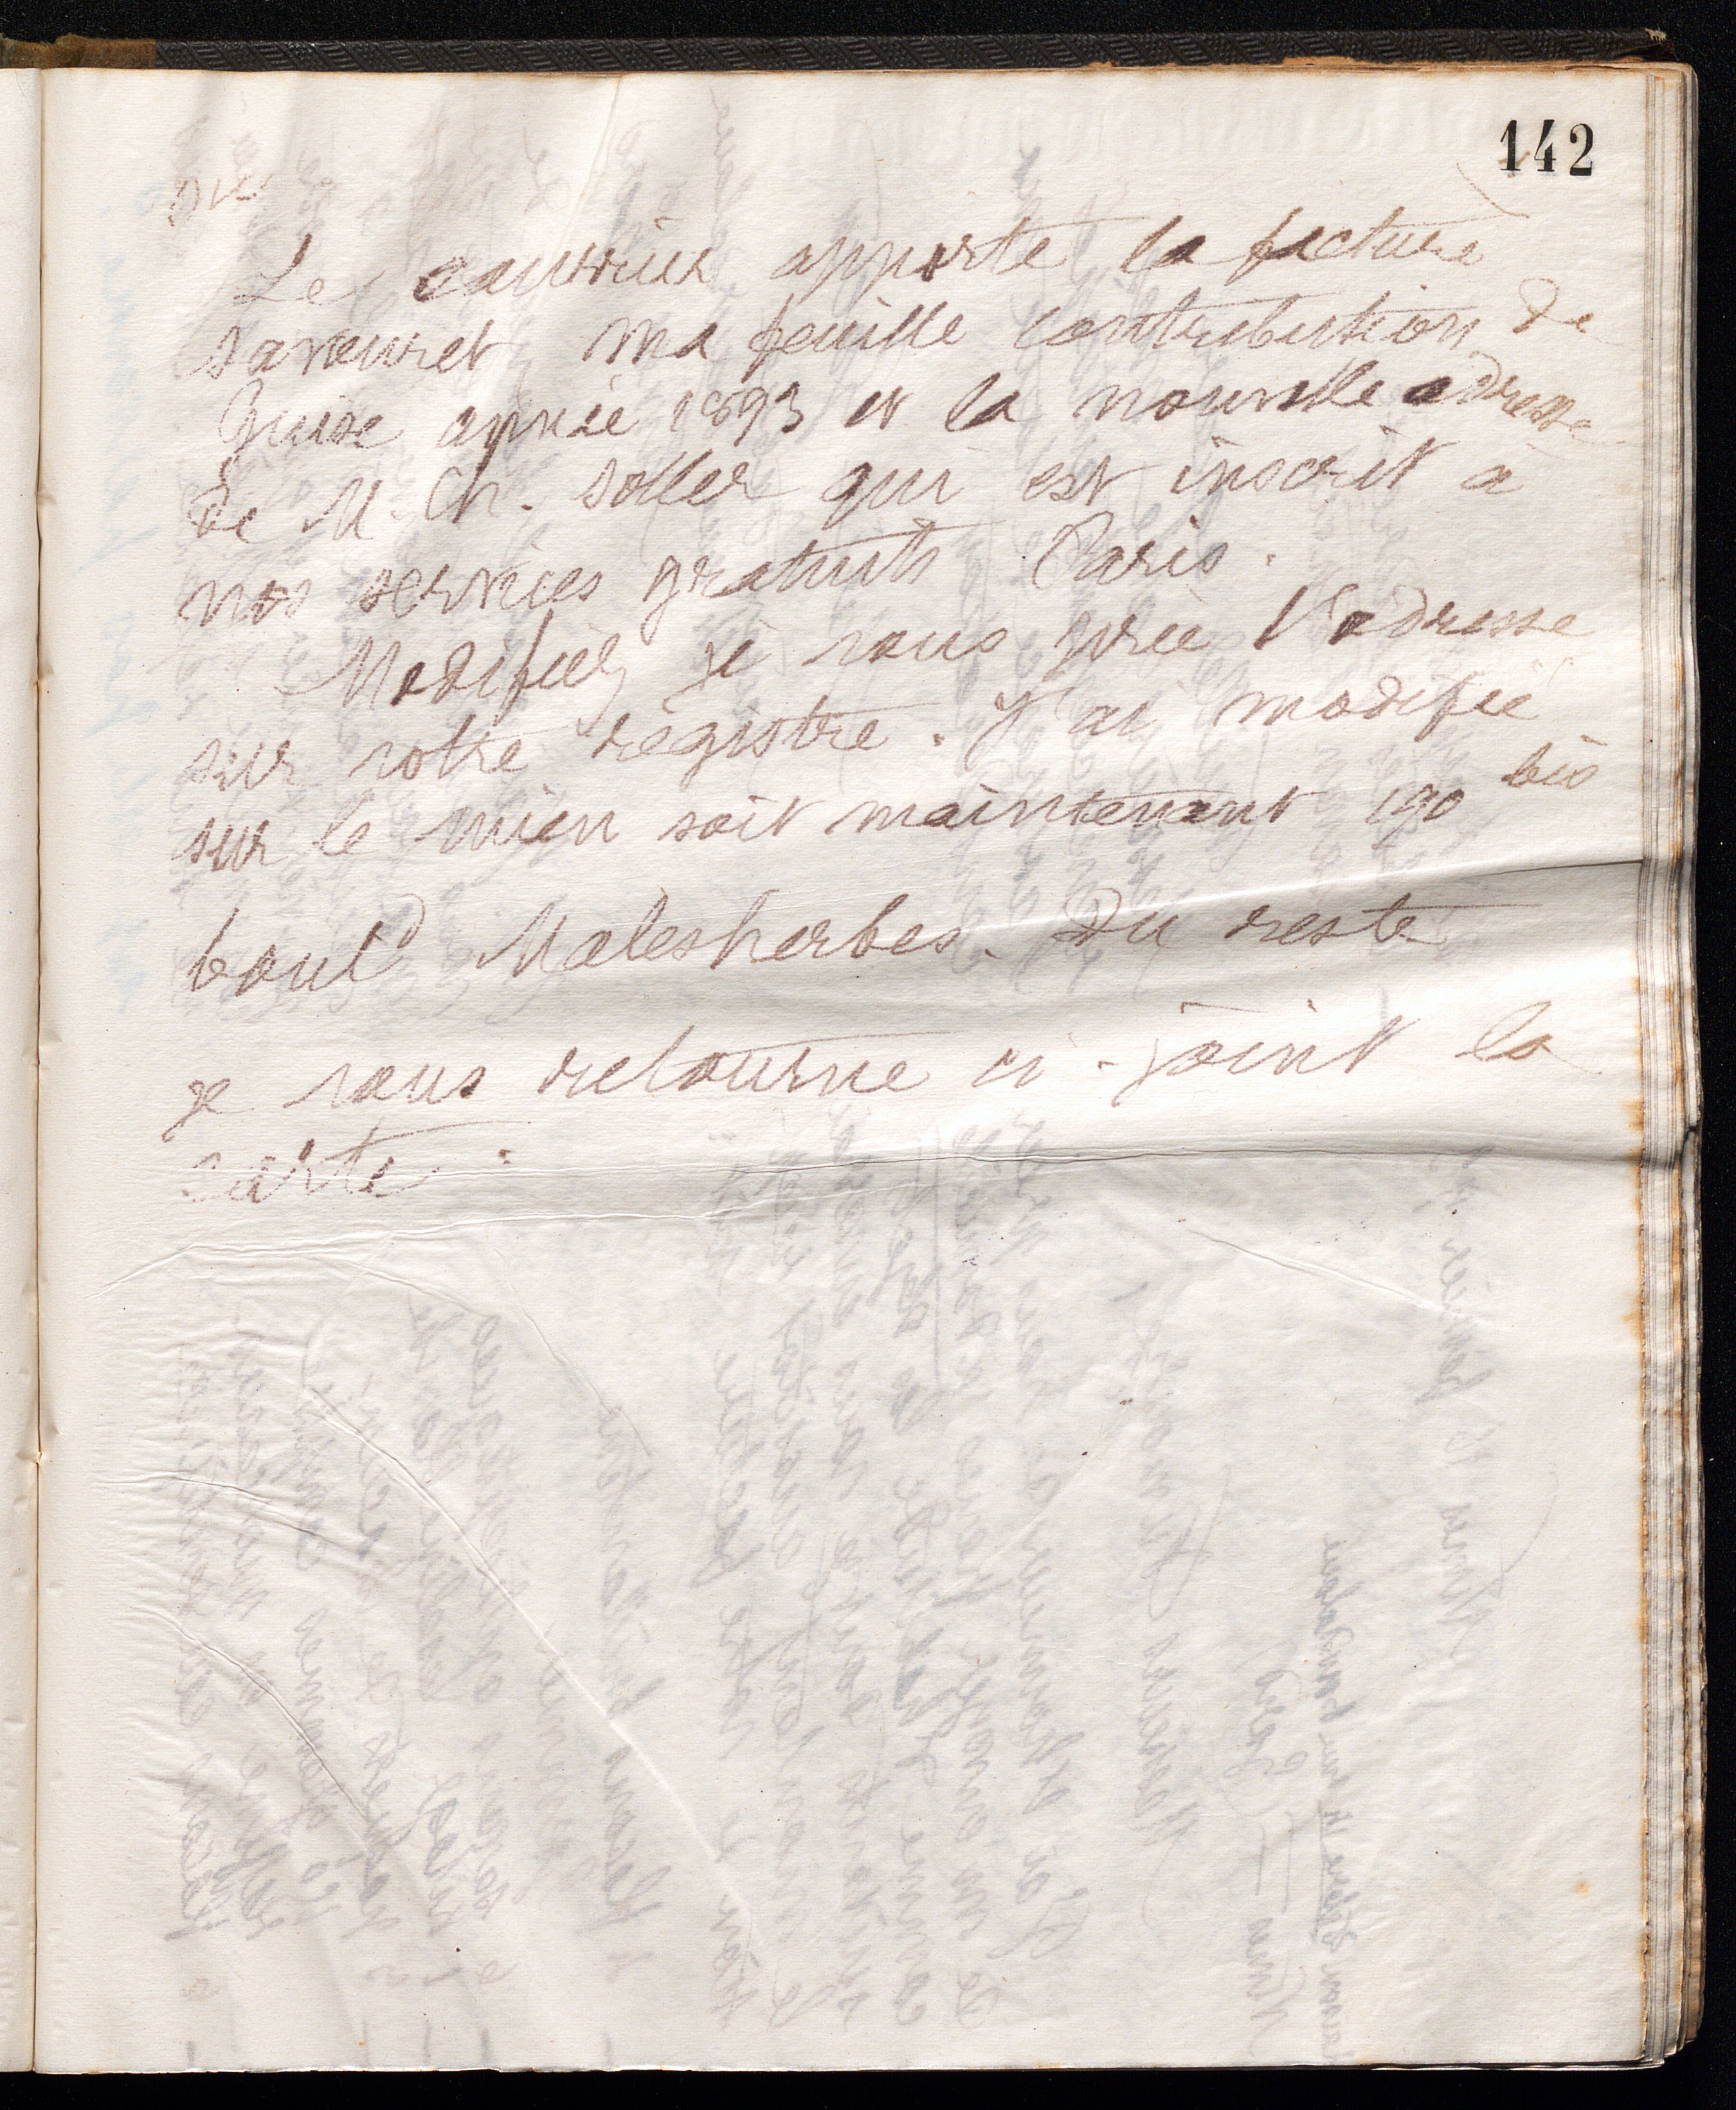 142
Le courrier apporte la facture
Savouret ma feuille contribution de
Guise année 1893 et la nouvelle adresse
de M. Ch. Soller qui est inscrit à
nos services gratuits Paris.
Modifiez je vous prie l'adresse
sur votre régistre. J'ai modifié
sur le mien soit maintenant 190 bis
bould Malesherbes. Du reste
je vous retourne ci-joint la
carte.